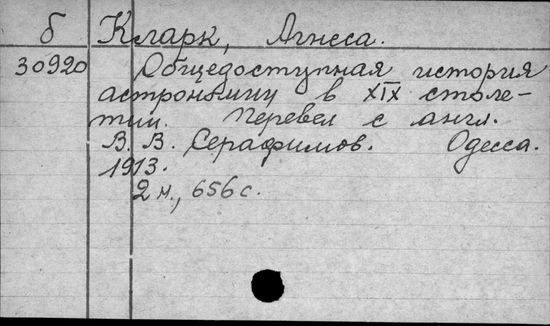 б Кларк, Агнесса.
30920 Общедоступная история
астрономии в XIX столе-
тии. Перевел с англ.
В. В. Серафимов. Одесса.
1913.
2 н., 656 с.